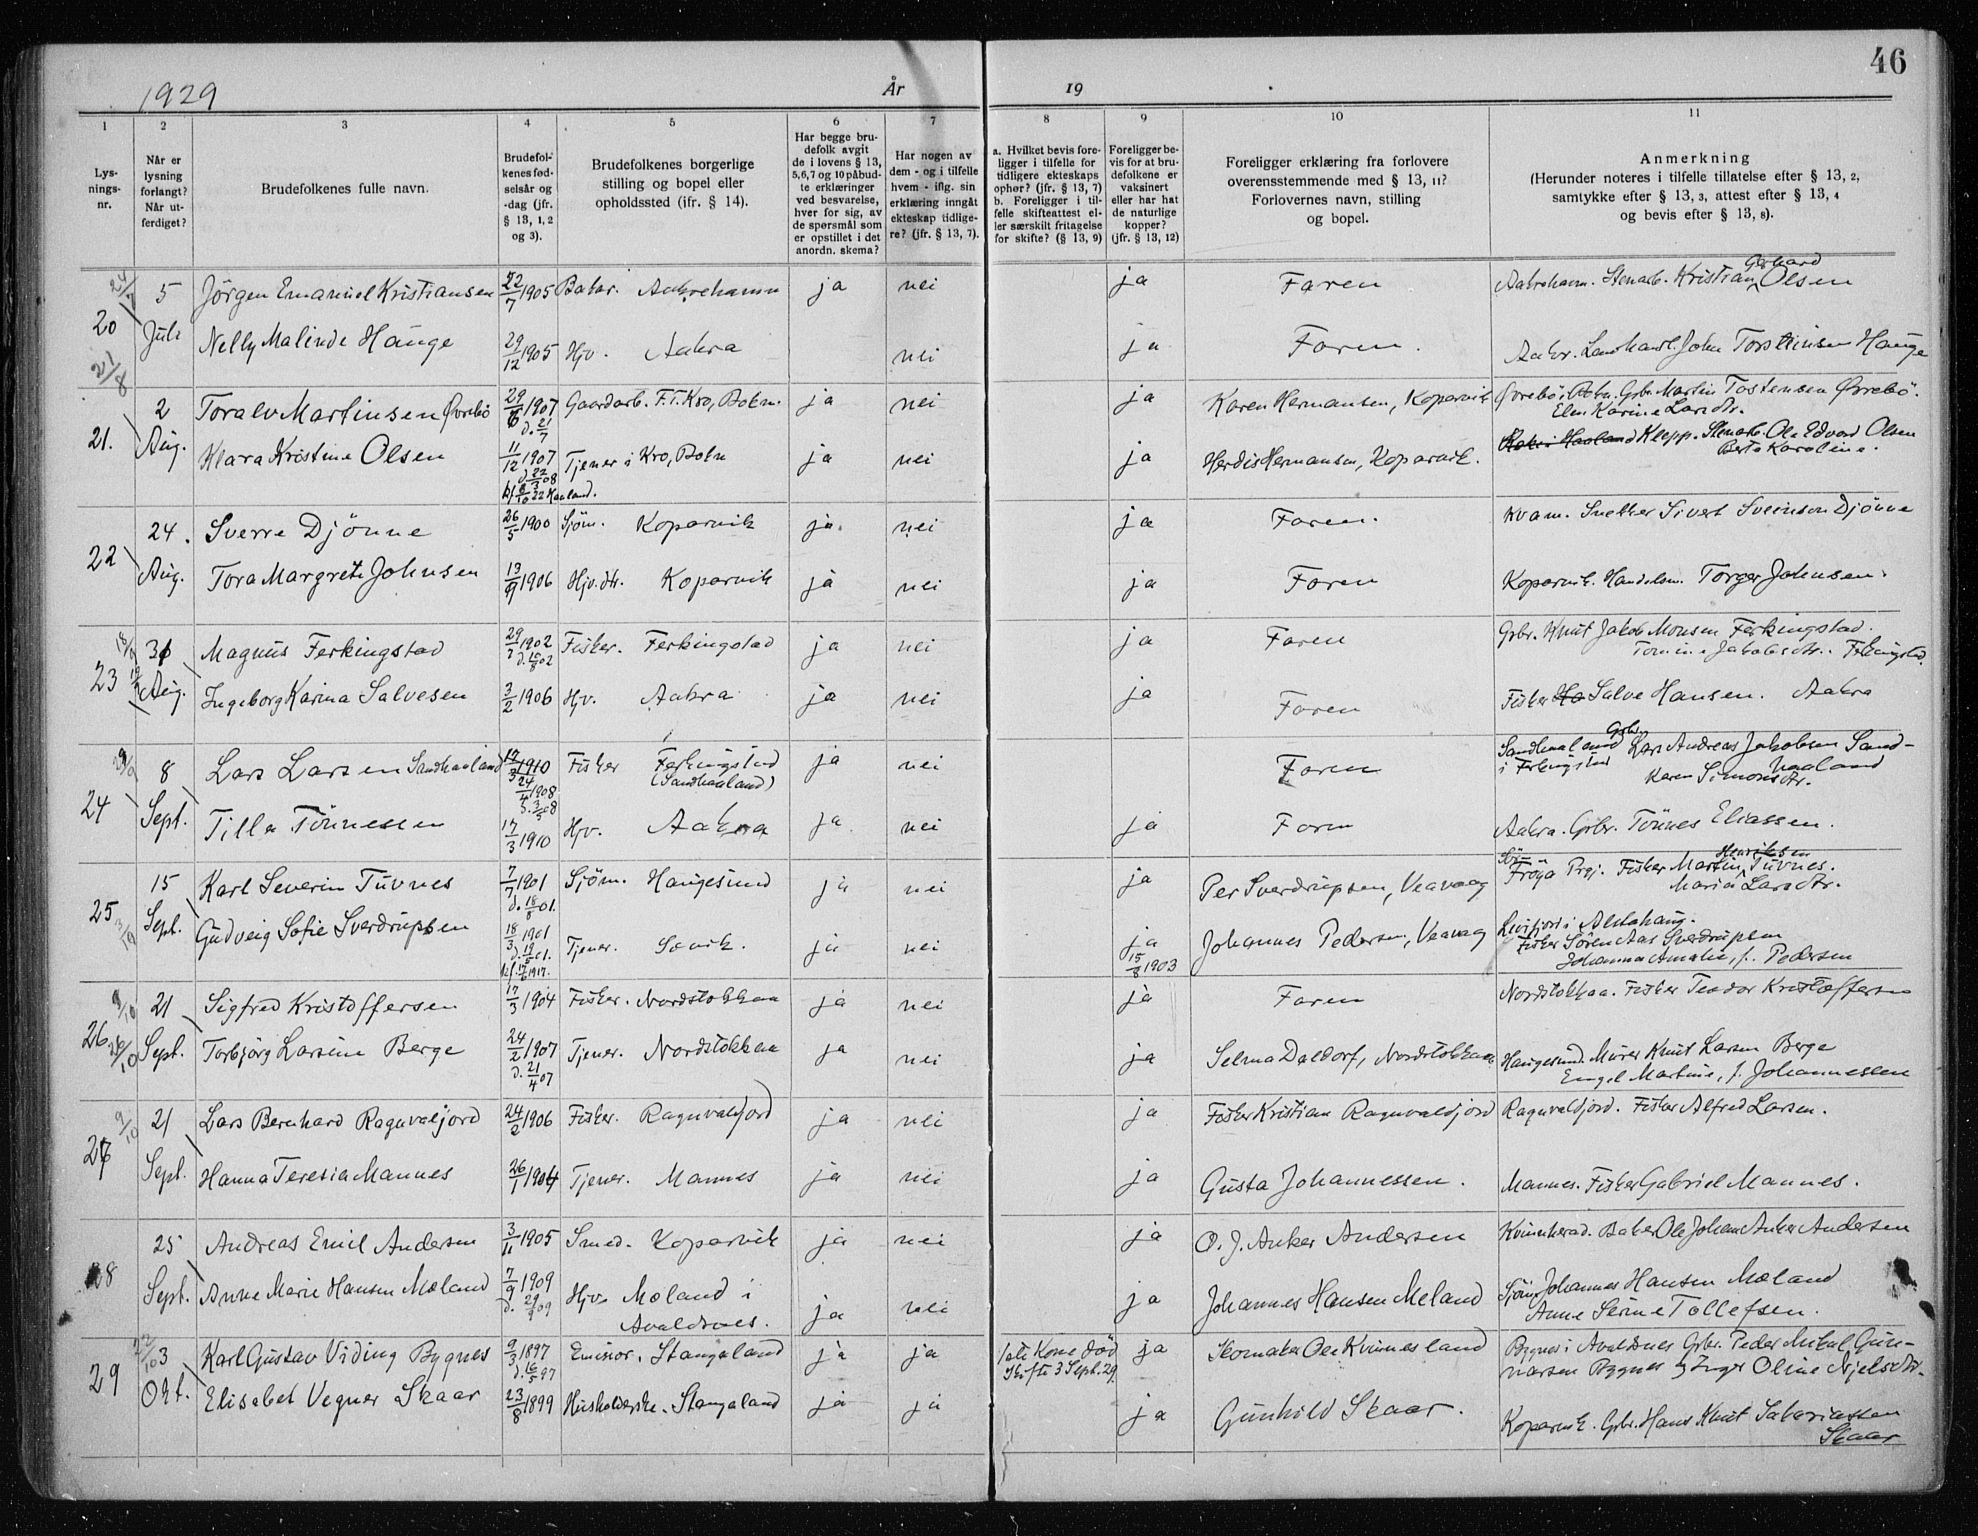 46
1929 År 19
1 2 3 4 5 6 7 8 9 10 11
Lys-
nings-
nr.
Når er
lysning
forlangt?
Når ut-
ferdiget?
Brudefolkenes fulle navn.
Brudefol-
kenes fød-
selsår og
-dag (jfr.
§ 13, 1, 2
og 3).
Brudefolkenes borgerlige
stilling og bopel eller
opholdssted (ifr. § 14).
Har begge bru-
defolk avgit
de i lovens § 13,
5, 6, 7 og 10 påbud-
te erklæringer
ved besvarelse,
hver for sig, av
de spørsmål som
er opstillet i det
anordn. skema?
Har nogen av
dem - og i tilfelle
hvem - iflg. sin
erklæring inngåt
ekteskap tidlige-
re? (jfr. § 13, 7).
a. Hvilket bevis fore-
ligger i tilfelle for
tidligere ekteskaps
ophør? (jfr. § 13, 7)
b. Foreligger i til-
felle skifteattest el-
ler særskilt fritagelse
for skifte? (§ 13, 9)
Foreligger be-
vis for at bru-
defolkene er
vaksinert
eller har hat
de naturlige
kopper?
(jfr. § 13, 12)
Foreligger erklæring fra forlovere
overensstemmende med § 13, 11?
Forlovernes navn, stilling
og bopel.
Anmerkning
(Herunder noteres i tilfelle tillatelse efter § 13, 2,
samtykke efter § 13, 3, attest efter § 13, 4
og bevis efter § 13, 8).
20 24/7 5 Jörgen Emanuel Kristiansen 22/7 1905 Baker. Aakrehamn ja nei ja Faren Aakrehavn. Stenarb. Kristian Gerhard Olsen
21/8 Juli Nelly Malinde Hauge 29/12 1905 Hjv. Aakra nei ja Faren. Aakr. Landhandl. John Torsteinsen Hauge
21. 2 Toralv Martinsen Øvrebö 29/6 1907 d. 21/7 Gaardarb. F.T. Kro, Bokn. ja nei ja Karen Hermansen, Kopervik Øvrebö i Bokn. Gbr. Martin Tostensen Øvrebö.
Elen Karine Larsdtr.
Aug. Klara Kristine Olsen 11/12 1907 d 22/3 08 Tjener i Kro, Bokn ja nei ja Herdis Hermansen, Kopervik. Klepp. Stenarb. Ole Edvard Olsen
Berte Karoline.
kf 8/10 22 Haaland.
22 24. Sverre Djönne 26/5 1900 Sjöm. Kopervik ja. nei ja Faren. Kvam. Snekker Sivert Sveinson Djönne
Aug. Tora Margrete Johnsen 13/9 1906 Hjv. dtr. Kopervik ja nei ja Faren Kopervik. Handelsm. Torger Johnsen.
23 31 Magnus Ferkingstad 29/7 1902 d. 10/8 02 Fisker. Ferkingstad ja nei ja Faren Gbr. Knut Jakob Monsen Ferkingstad.
Tomine Jakobsdtr. Ferkingstad.
Aug. Ingeborg Karina Salvesen 3/2 1906 Hjv. Aakra ja nei ja Faren Fisker Salve Hansen. Aakra
24 8 Lars Larsen Sandhaaland 17/3 1910 24/4 1908 d. 3/5 08 Fisker Ferkingstad (Sandhaaland) ja nei Faren Sandhaaland i Ferkingstad Gbr. Lars Andreas Jakobsen Sand-
haaland
Karen Simonsdtr.
Sept. Tilla Tönnessen 17/3 1910 Hjv. Aakra ja nei ja Faren Aakra. Gbr. Tönnes Eliassen.
25 15 Karl Severin Tuvnes 7/7 1901 d. 18/8 01. Sjöm. Haugesund ja nei ja Per Sverdrupsen, Veavaag Sör-Fröya Prgj. Fisker Martin Henriksen Tuvnes.
Maria Larsdtr.
Sept. Gudveig Sofie Sverdrupsen 18/3 1901 d. 19/5 01. kf. 17/6 1917. Tjener. Sævik. ja nei ja 15/8 1903 Johannes Pedersen, Veavaag i Alstahaug.
Fisker Sören Aas Sverdrupsen
Johanna Amalie, f. Pedersen
26 21 Sigfred Kristoffersen 17/3 1904 Fisker. Nordstokkaa ja nei ja Faren Nordstokkaa. Fisker Teodor Kristoffersen
26/10 Sept. Torbjörg Larsine Berge 24/2 1907 d. 21/4 07 Tjener. Nordstokkaa ja nei ja Selma Daldorf, Nordstokkaa Haugesund. Murer Knut Larsen Berge
Engel Martine, f. Johannessen
27 9/10 21 Lars Bernhard Ragnvaljord 24/2 1906 Fisker. Ragnvaldjord ja nei ja Fisker Kristian Ragnvaldjord Ragnvaldjord. Fisker Alfred Larsen.
Sept. Hanna Teresia Mannes 26/1 1904 Tjener. Mannes ja nei ja Gusta Johannessen. Mannes. Fisker Gabriel Mannes.
28 25 Andreas Emil Andersen 3/11 1905 Smed. Kopervik ja nei ja O. J. Anker Andersen Kvinnherad. Baker Ole Johan Anker Andersen
Sept. Anne Marie Hansen Mæland 7/9 1909 d. 29/9 09 Hjv. Mæland i Avaldsnes. ja nei ja Johannes Hansen Meland Sjöm. Johannes Hansen Mæland
Anne Serine Tollefsen.
29 22/10 3 Karl Gustav Viding Bygnes 9/3 1897 d. 16/5 97 Stangaland ja ja Kone död
Skifte 3 Sept. 29. ja Skomaker Ole Kvinnesland Bygnes i Avaldsnes Gbr. Peder Mikal Gun-
narsen Bygnes og Inger Oline Njelsdtr.
Okt. Elisabet Vegner Skaar 23/8 1899 Husholderske. Stangaland ja ja ja Gunhild Skaar. Kopervik. Gbr. Hans Knut Sakariassen
Skaar